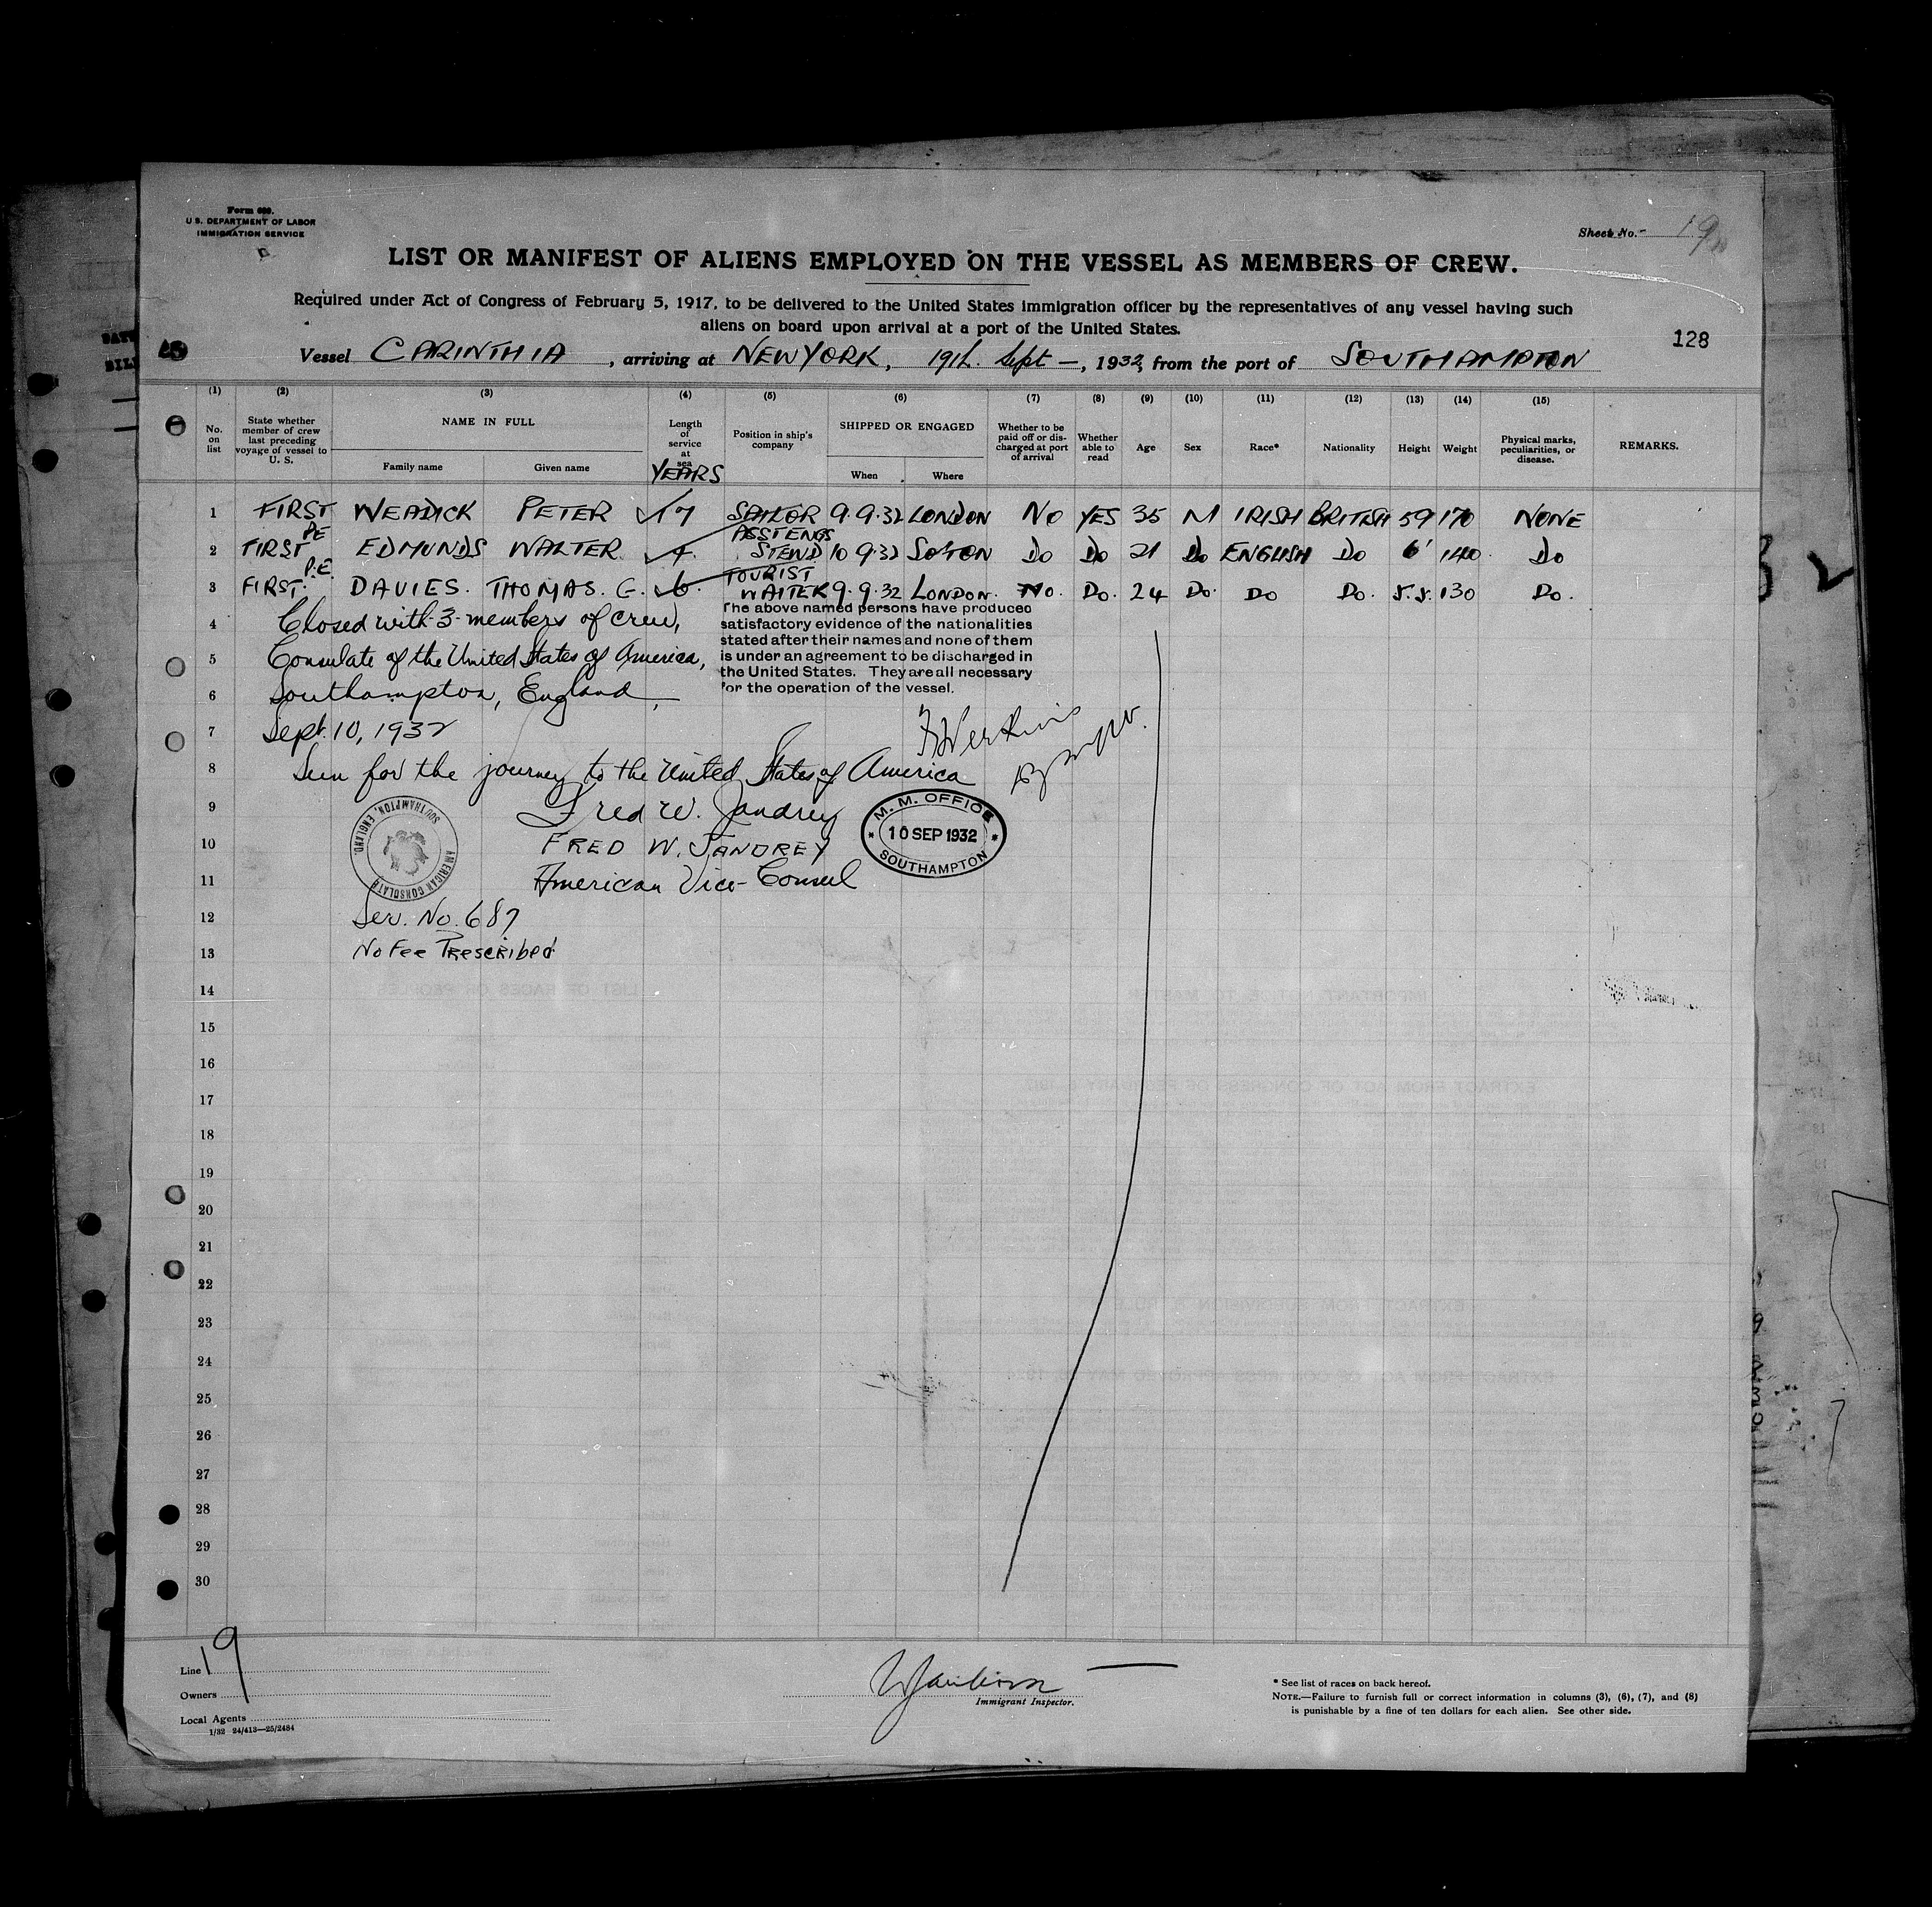 Form 689.
U.S. DEPARTMENT OF LABOR
IMMIGRATION SERVICE
Sheet No. 19
LIST OR MANIFEST OF ALIENS EMPLOYED ON THE VESSEL AS MEMBERS OF CREW.
Required under Act of Congress of February 5, 1917, to be delivered to the United States immigration officer by the representatives of any vessel having such
aliens on board upon arrival at a port of the United States.
128
Vessel CARINTHIA, arriving at NEW YORK, 19th Sept —, 1932, from the port of SOUTHAMPTON
(1) (2) (3) (4) (5) (6) (7) (8) (9) (10) (11) (12) (13) (14) (15)
No. on list State whether member of crew last preceding voyage of vessel to U. S. NAME IN FULL Family name Given name Length of service at sea YEARS Position in ship's company SHIPPED OR ENGAGED When Where Whether to be paid off or discharged at port of arrival Whether able to read Age Sex Race* Nationality Height Weight Physical marks, peculiarities, or disease. REMARKS.
1 FIRST WEADICK PETER 17 SAILOR 9.9.32 LONDON NO YES 35 M IRISH BRITISH 59 170 NONE
2 FIRST P.E EDMUNDS WALTER 4 ASST ENGS STEWD 10 9.32 SO'TON DO DO 21 DO ENGLISH DO 6' 140 DO
3 FIRST. P.E. DAVIES. THOMAS. G. 6 TOURIST WAITER 9.9.32 LONDON. NO. DO. 24 DO. DO DO. 5.8. 130 DO.
4 Closed with 3 members of crew,
5 Consulate of the United States of America,
6 Southampton, England,
The above named persons have produced
satisfactory evidence of the nationalities
stated after their names and none of them
is under an agreement to be discharged in
the United States. They are all necessary
for the operation of the vessel.
7 Sept. 10, 1932
8 Seen for the journey to the United States of America
9 Fred W. Jandrey
10 FRED W. JANDREY
11 American Vice-Consul
AMERICAN CONSULATE SOUTHAMPTON, ENGLAND.
M. M. OFFICE
10 SEP 1932
SOUTHAMPTON
12 Ser. No. 687
13 No Fee Prescribed
14
15
16
17
18
19
20
21
22
23
24
25
26
27
28
29
30
19
Line
Owners
Local Agents
1/32 24/413—25/2484
Immigrant Inspector.
* See list of races on back hereof.
NOTE.—Failure to furnish full or correct information in columns (3), (6), (7), and (8)
is punishable by a fine of ten dollars for each alien. See other side.